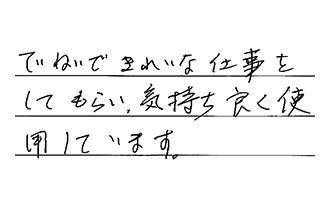 でいねいで きれいな仕事を
してもらい、気持ち良く使
用しています。